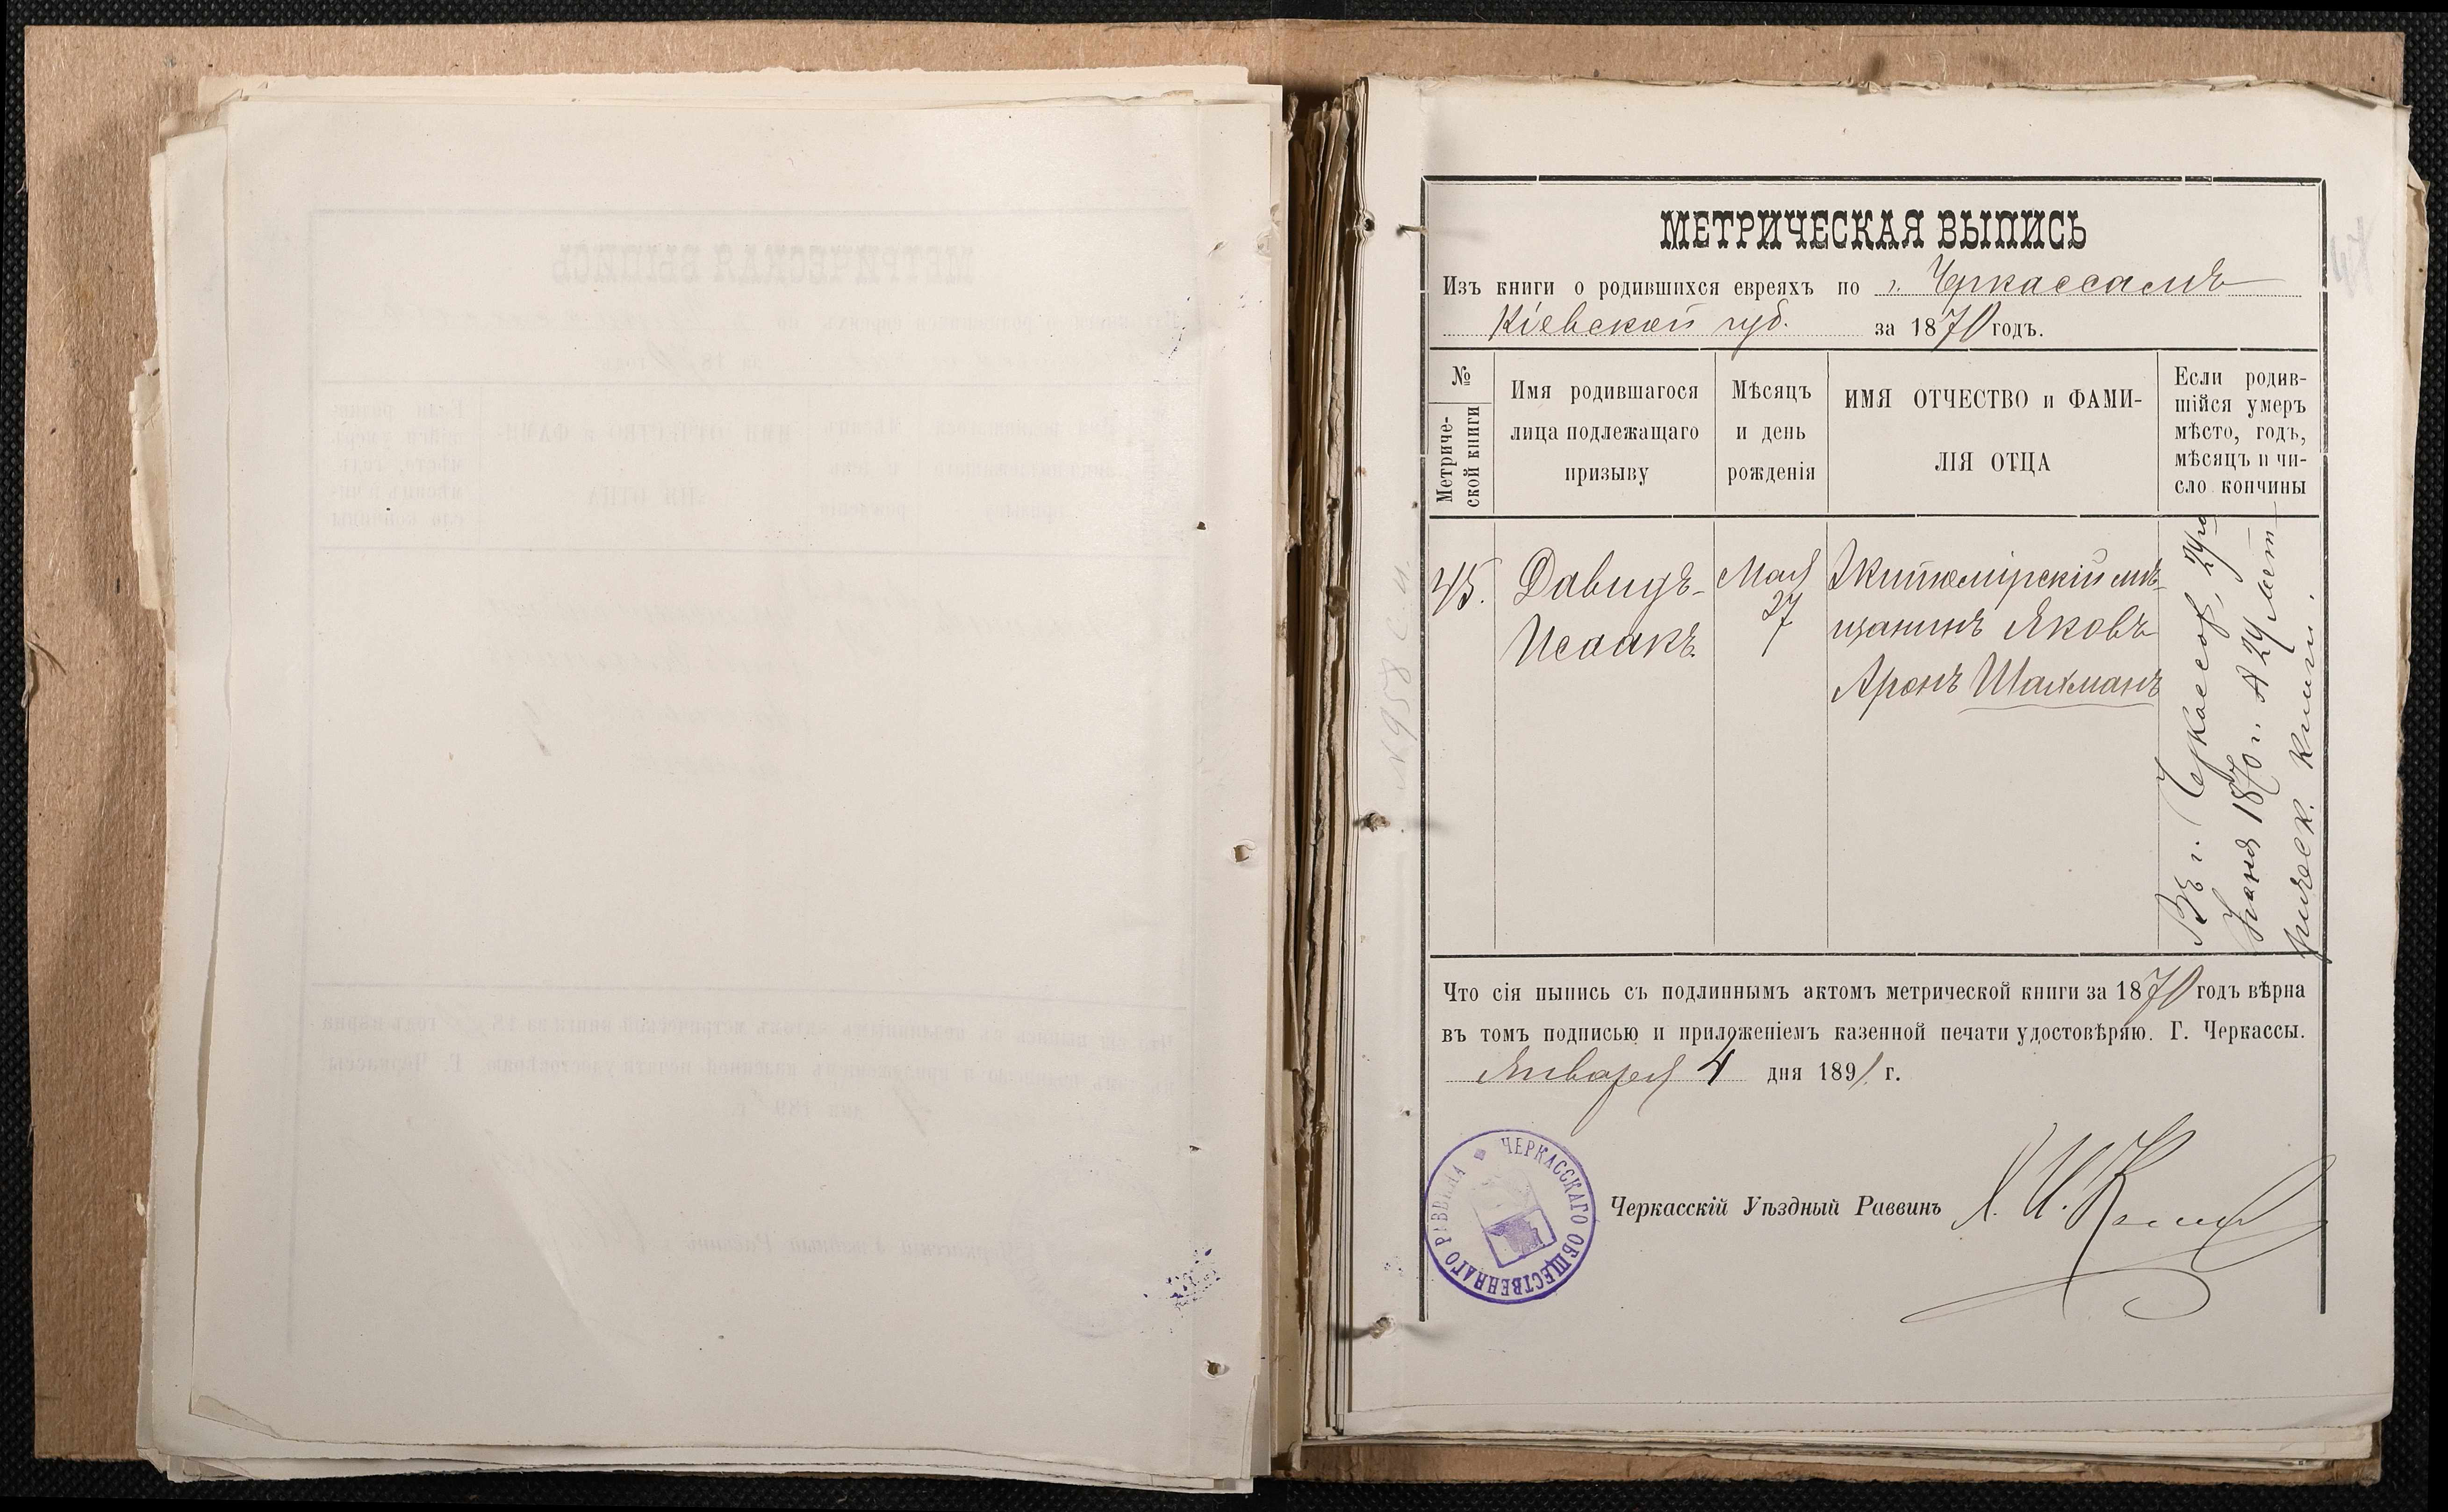 МЕТРИЧЕСКАЯ ВЫПИСЬ
Изъ книги о родившихся евреяхъ по г. Черкассамъ
Кіевской губ. за 1870 годъ.
№
Метриче-
ской книги
Имя родившагося
лица подлежащаго
призыву
Мѣсяцъ
и день
рожденія
ИМЯ ОТЧЕСТВО и ФАМИ-
ЛІЯ ОТЦА
Если родив-
шійся умеръ
мѣсто, годъ,
мѣсяцъ и чи-
сло кончины
45.
Давидъ-
Исаакъ
Мая
27
Житомірскій мѣ-
щанинъ Яковъ
Аронъ Шахманъ
Въ г. Черкассах, 29го
1870 г. № 24 мет-
рическ. книги.
Что сія ыыпись съ подлиннымъ актомъ метрической книги за 1870 годъ вѣрна
въ томъ подписью и приложеніемъ казенной печати удостовѣряю. Г. Черкассы.
Января 4 дня 1891 г.
ЧЕРКАССКАГО ОБЩЕСТВЕННАГО РАВВИНА
Черкасскій Уѣздный Раввинъ Х. И.
№ 958 С. И.